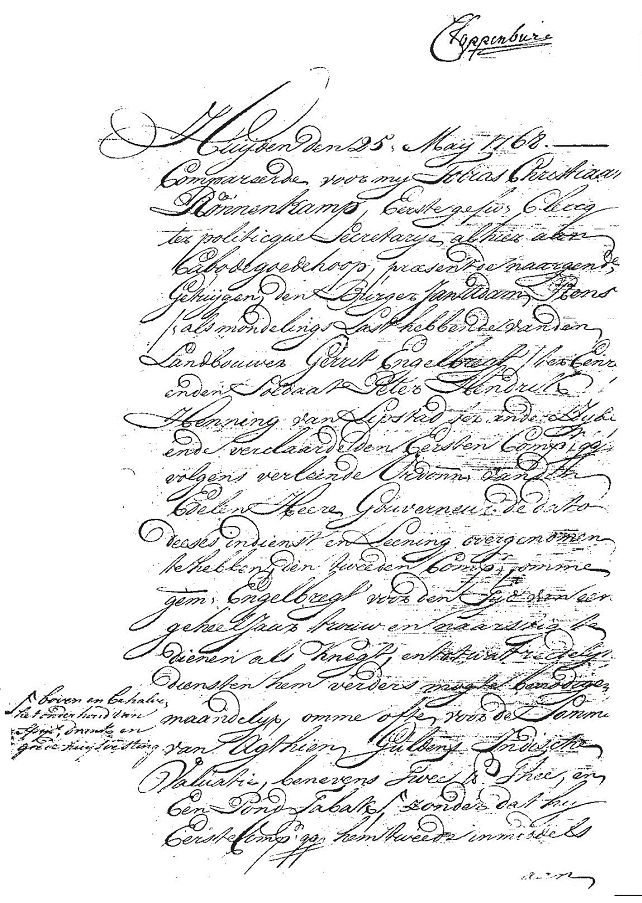 Huijden den 25. Maij 1768.
Compareerde voor mij Tobias Christiaan
Rönnenkamp, Eerste geswe. Clercq
ter politicque Secretarije alhier aan
Cabo de goede hoop, præsent de naargende.
Getuijgen, den Burger Jan Adam
/:als mondelings Last hebbende van den
Landbouwer Gerrit Engelbregt /: ter Eenr
en den Soldaat Peter Hendrik
Henning van Lipstad ter andere Zijde
ende verclaarde den Eersten Comp:t
volgens verleende Ordonn: van den
Edelen Heere Gouverneur de dato
deeses in dienst en Leening overgenomen
te hebben, den tweeden Comp:t omme
gem: Engelbregt voor den Tijd van een
geheel Jaar trouw en naarstig te
dienen als Knegt, en tot wat
diensten hem verders mogte
maandelijx, omme ofte voor de Somma
van Agthien Guldens Indische
Valuatie, benevens Twee lb Thee, en
Een Pond Tabak, ſ zonder dat hij
Eerste Comp:t hem tweede inmiddels
aan
ſ boven en behalve
het onderhoud van
Spijs drank en
goede huijsvesting